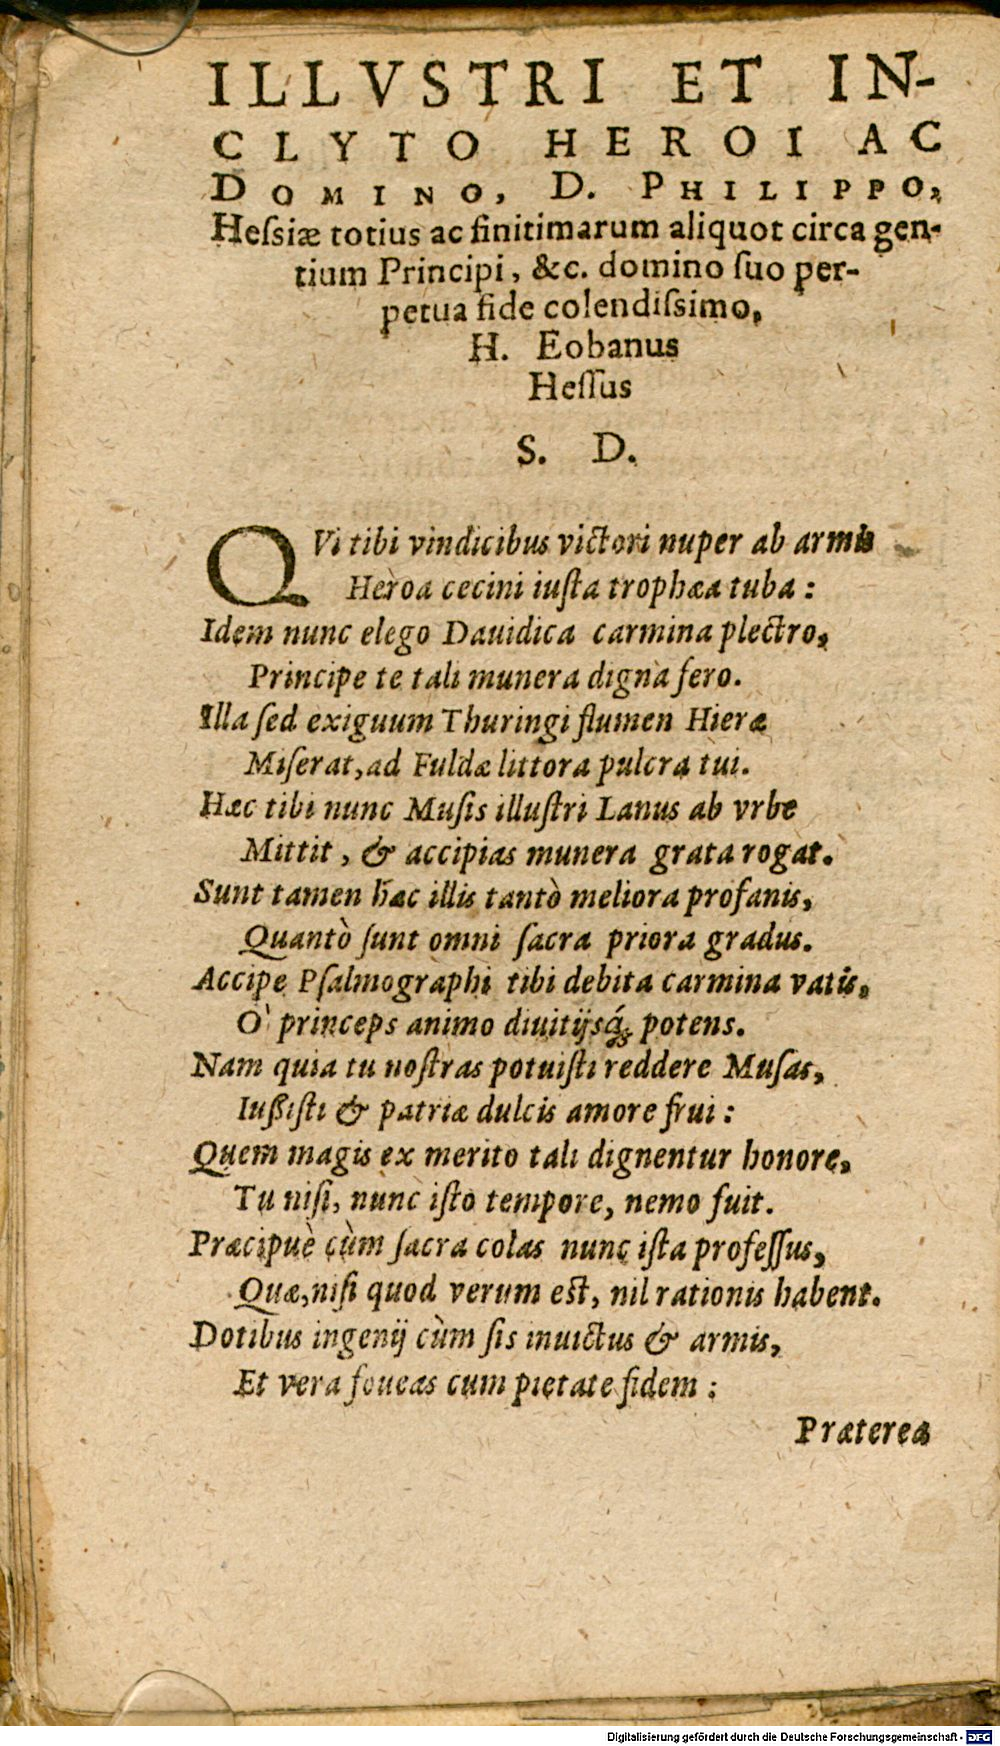 ILLVSTRI ET IN-
CLYTO HEROI AC
DOMINO, D. PHILIPPO,
Heſsiæ totius ac finitimarum aliquot circa gen-
tium Principi, &c. domino ſuo per-
petua fide colendiſsimo,
H. Eobanus
Heſſus
S. D.
QVi tibi vindicibus victori nuper ab armis
Heròa cecini iuſta trophæa tuba:
Idem nunc elego Dauidica carmina plectro,
Principe te tali munera digna fero.
Illa ſed exiguum Thuringi flumen Hieræ
Miſerat, ad Fuldæ littora pulcra tui.
Hæc tibi nunc Muſis illuſtri Lanus ab vrbe
Mittit, & accipias munera grata rogat.
Sunt tamen hæc illis tantò meliora profanis,
Quantò ſunt omni ſacra priora gradus.
Accipe Pſalmographi tibi debita carmina vatis,
O' princeps animo diuitijsq́; potens.
Nam quia tu noſtras potuiſti reddere Muſas,
Iuſsiſti & patriæ dulcis amore frui:
Quem magis ex merito tali dignentur honore,
Tu niſi, nunc iſto tempore, nemo fuit.
Præcipuè cùm ſacra colas nunc iſta profeſſus,
Quæ, niſi quod verum eſt, nil rationis habent.
Dotibus ingenij cùm ſis inuictus & armis,
Et vera foueas cum pietate fidem:
Præterea
Digitalisierung gefördert durch die Deutsche Forschungsgemeinschaft - DFG